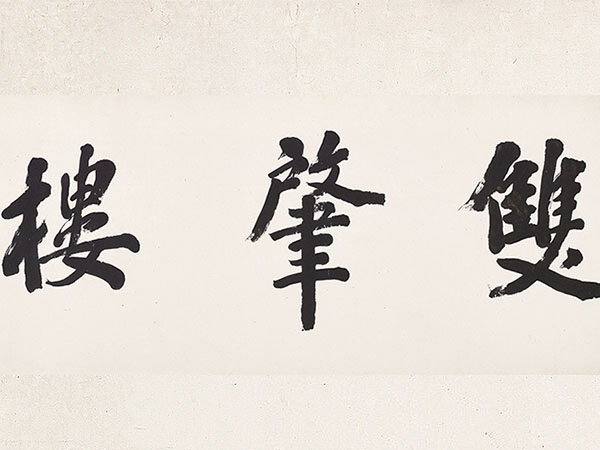 雙肇樓